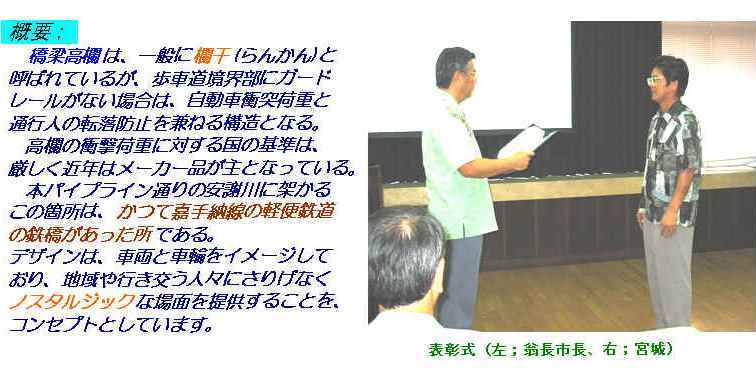 概要；
橋梁高欄は、一般に欄干(らんかん)と
呼ばれているが、歩車道境界部にガード
レールがない場合は、自動車衝突荷重と
通行人の転落防止を兼ねる構造となる。
高欄の衝撃荷重に対する国の基準は、
厳しく近年はメーカー品が主となっている。
本パイプライン通りの安謝川に架かる
この箇所は、かつて嘉手納線の軽便鉄道
の鉄橋があった所である。
デザインは、車両と車輪をイメージして
おり、地域や行き交う人々にさりげなく
ノスタルジックな場面を提供することを、
コンセプトとしています。
表彰式（左；翁長市長、右；宮城）